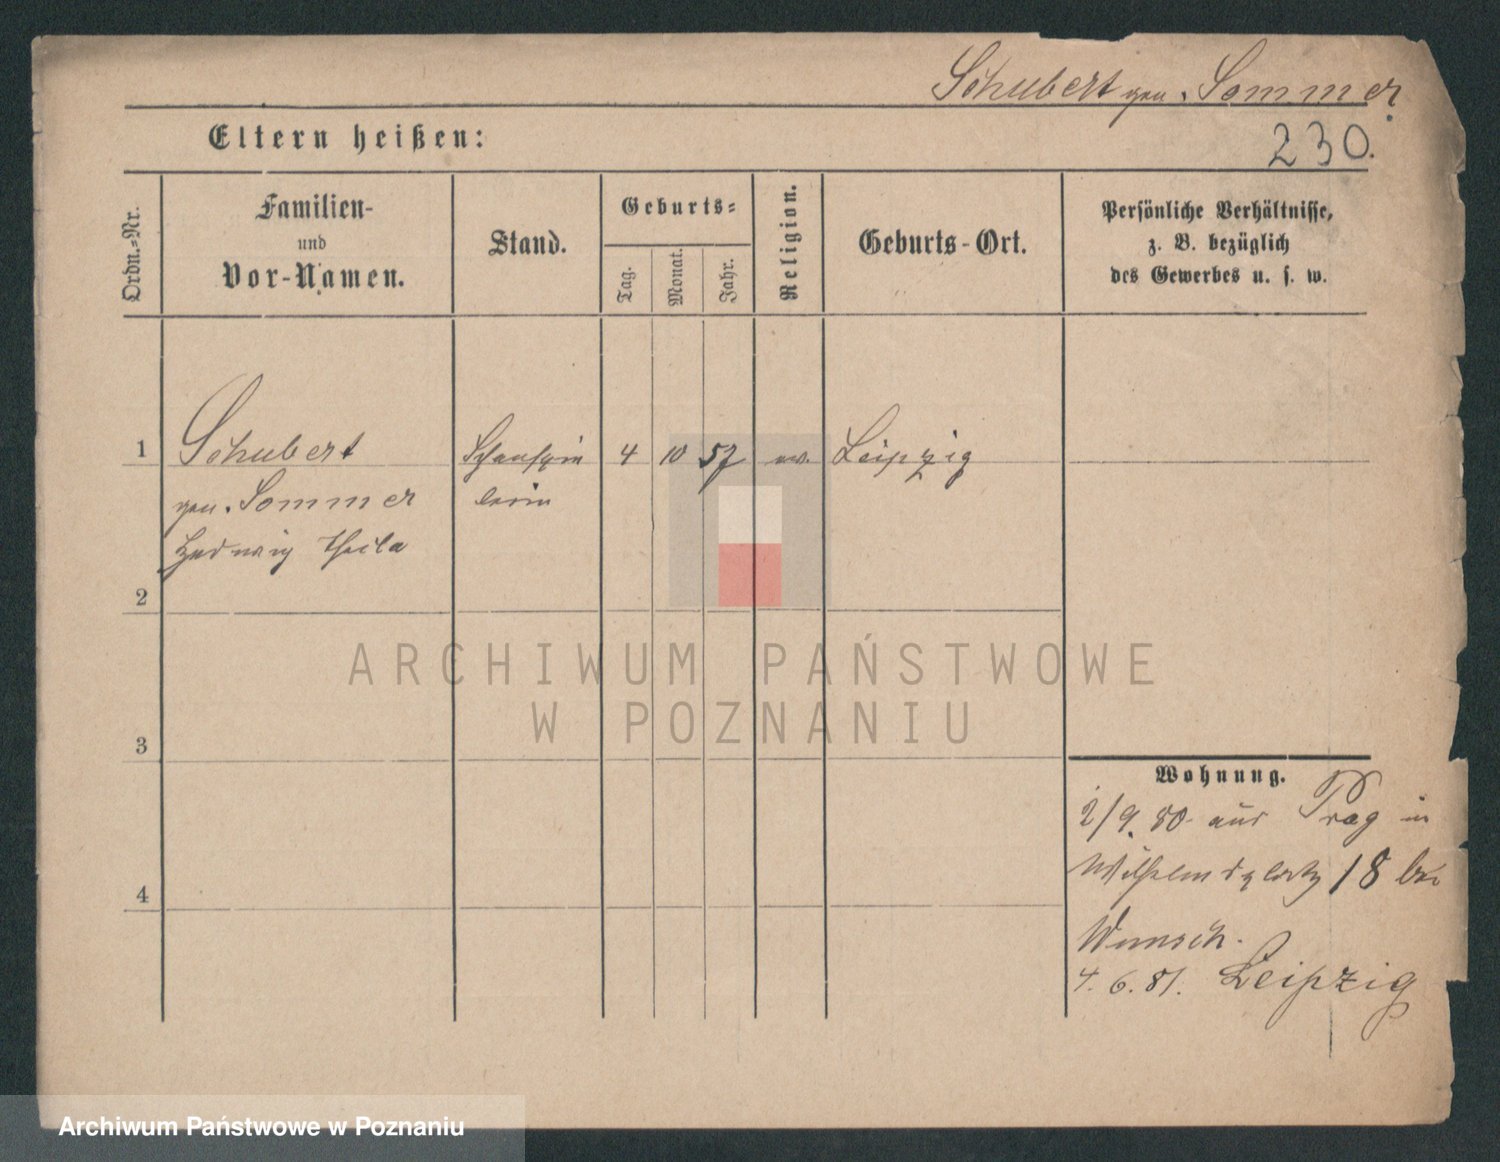 Schubert gen. Sommer
230.
Eltern heißen:
Ordn.-Nr.
Familien-
und
Vor-Namen.
Stand.
Geburts-
Tag.
Monat.
Jahr.
Religion.
Geburts-Ort.
Persönliche Verhältnisse,
z. B. bezüglich
des Gewerbes u. s. w.
1 Schubert Schauspie 4 10 57 ev. Leipzig
gen. Sommer lerin
Hedwig
2
3
4
Wohnung.
2/9. 80. aus Prag in
Wilhelmsplatz 18 bei
Wunsch.
4. 6. 81. Leipzig
ARCHIWUM PAŃSTWOWE
W POZNANIU
Archiwum Państwowe w Poznaniu